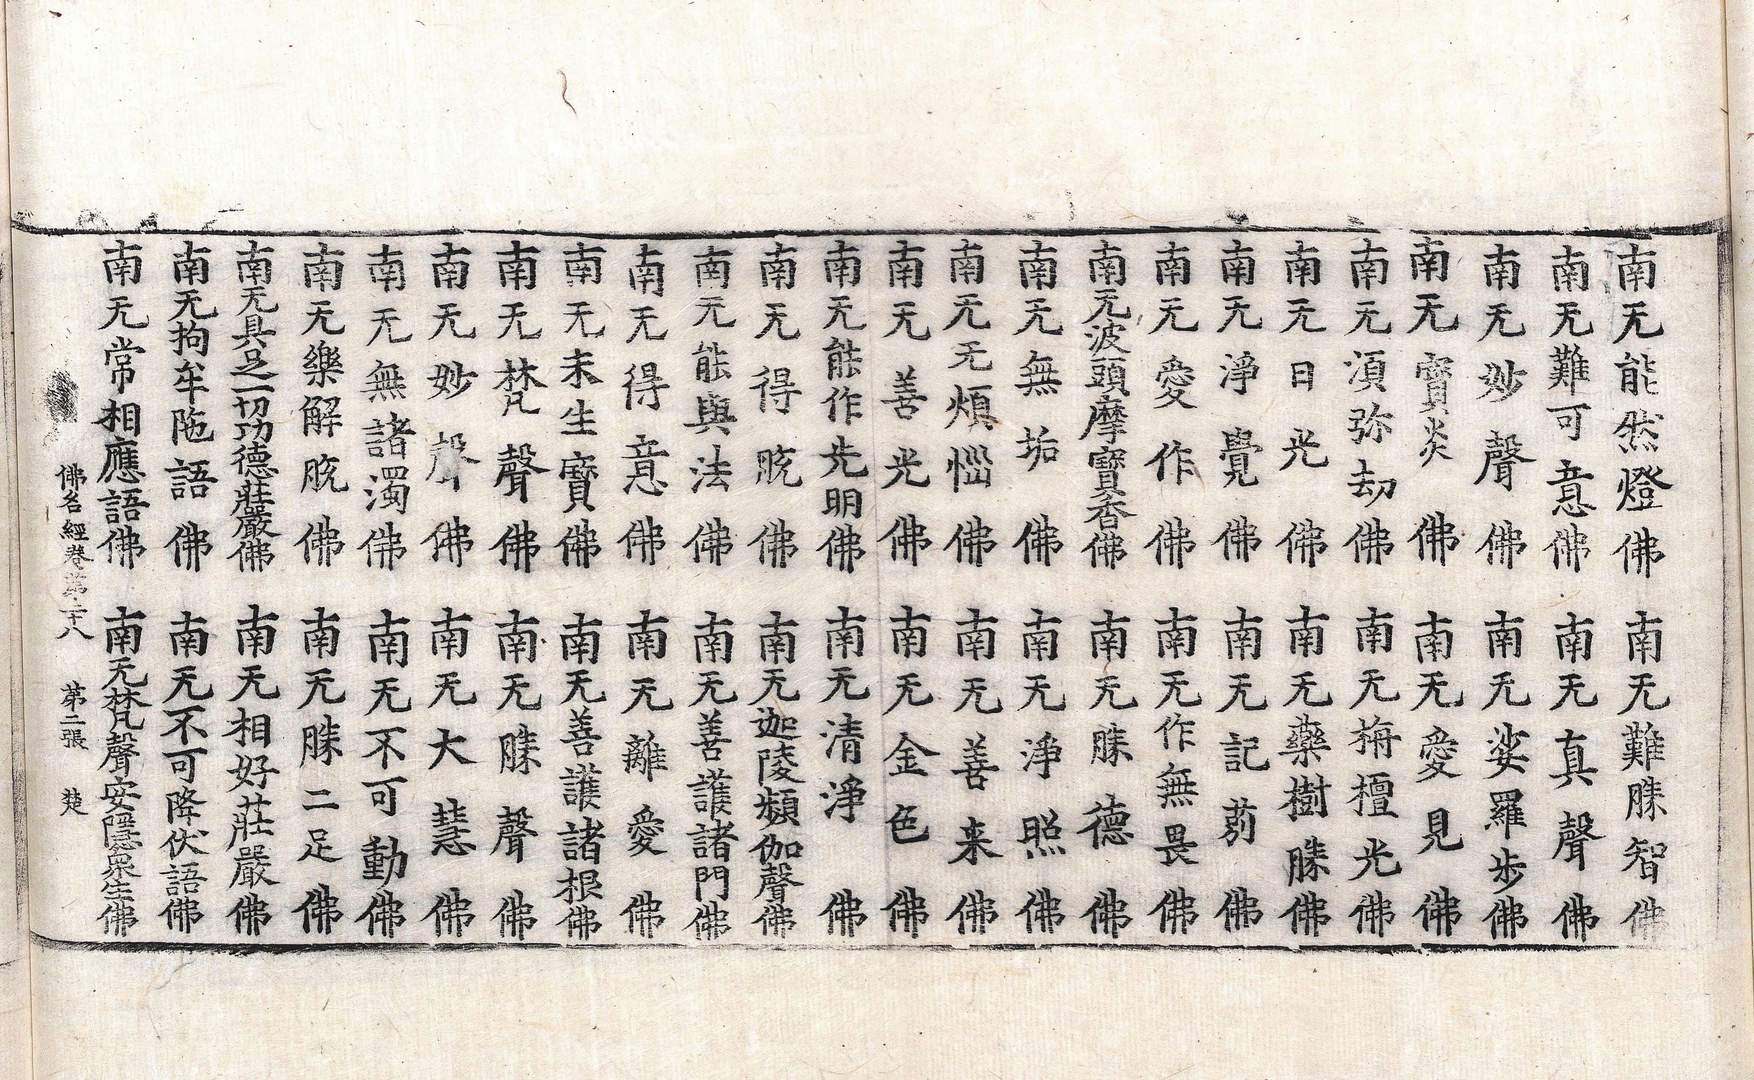 南无能然燈佛　南无難勝智佛
南无難可意佛　南无真聲佛
南无妙聲佛　南无娑羅步佛
南无寶炎佛　南无愛見佛
南无湏弥劫佛　南无栴檀光佛
南无日光佛　南无藥樹勝佛
南无淨覺佛　南无記莂佛
南无愛作佛　南无作無畏佛
南无波頭摩寶香佛　南无勝德佛
南无無垢佛　南无淨照佛
南无无煩惱佛　南无善来佛
南无善光佛　南无金色佛
南无能作光明佛　南无清淨佛
南无得脫佛　南无迦陵頻伽聲佛
南无能與法佛　南无善護諸門佛
南无得意佛　南无離愛佛
南无未生寶佛　南无善護諸根佛
南无梵聲佛　南无勝聲佛
南无妙聲佛　南无大慧佛
南无無諸濁佛　南无不可動佛
南无樂解脫佛　南无勝二足佛
南无具足一切功德莊嚴佛　南无相好莊嚴佛
南无拘牟陁語佛　南无不可降伏語佛
南无常相應語佛　南无梵聲安隱衆生佛
佛名經卷第二十八　第二張　楚